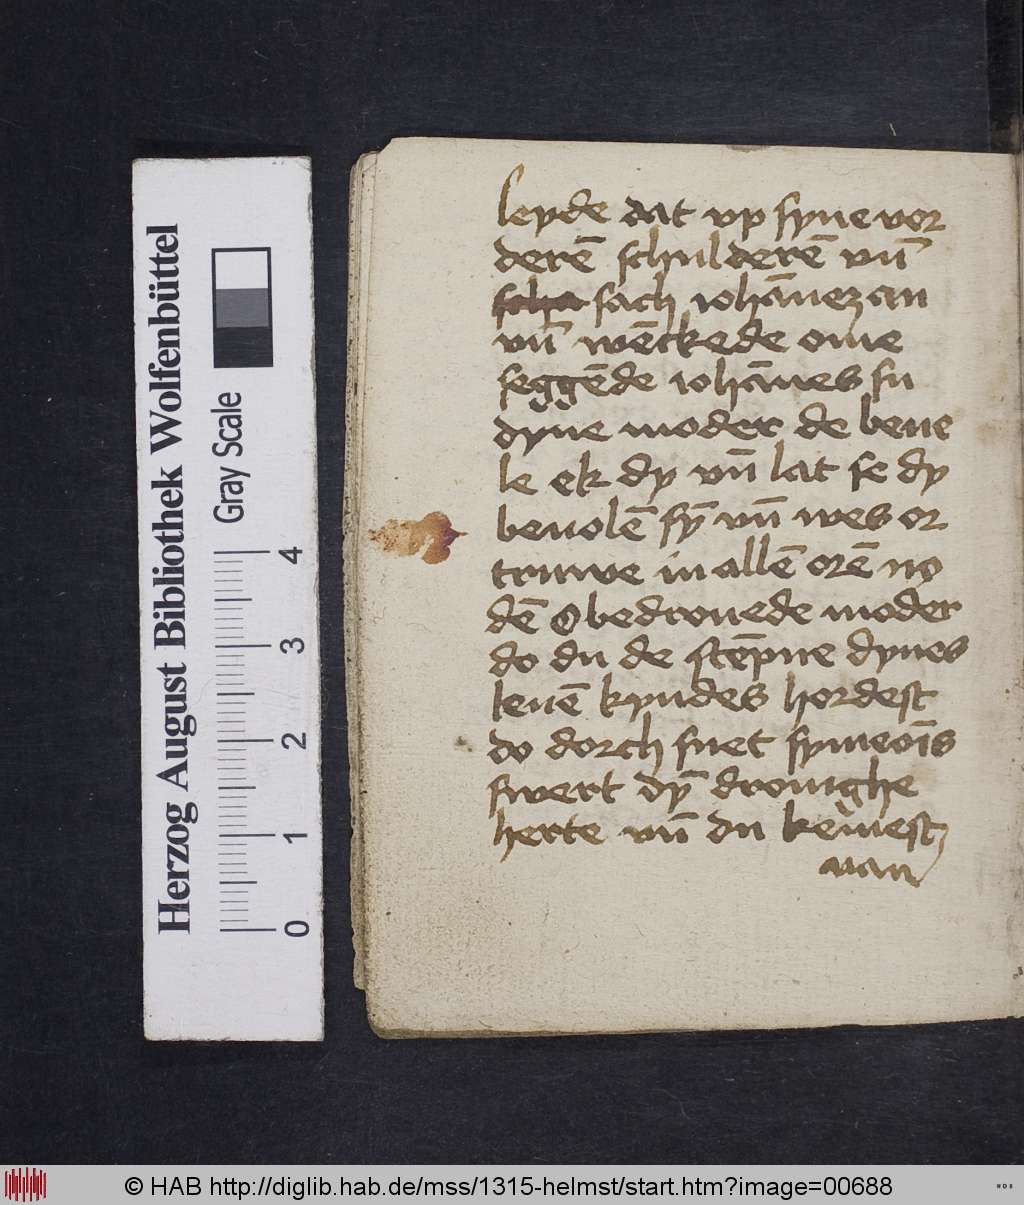 leyde dat vp syne vor
derē schulderē vn̄
sach iohānez an
vn̄ wēckede ome
seggēde iohānes su
dyne moder de beue
le ek dy vn̄ lat se dy
beuolē sȳ vn̄ wes or
truwe in allē orē no
dē O bedrouede moder
do du de stēpne dynes
leuē kyndes hordest
do dorch snet symeōīs
swert dȳ drouighe
herte vn̄ du keīnest
van
Herzog August Bibliothek Wolfenbüttel
Gray Scale
0 1 2 3 4
© HAB http://diglib.hab.de/mss/1315-helmst/start.htm?image=00688